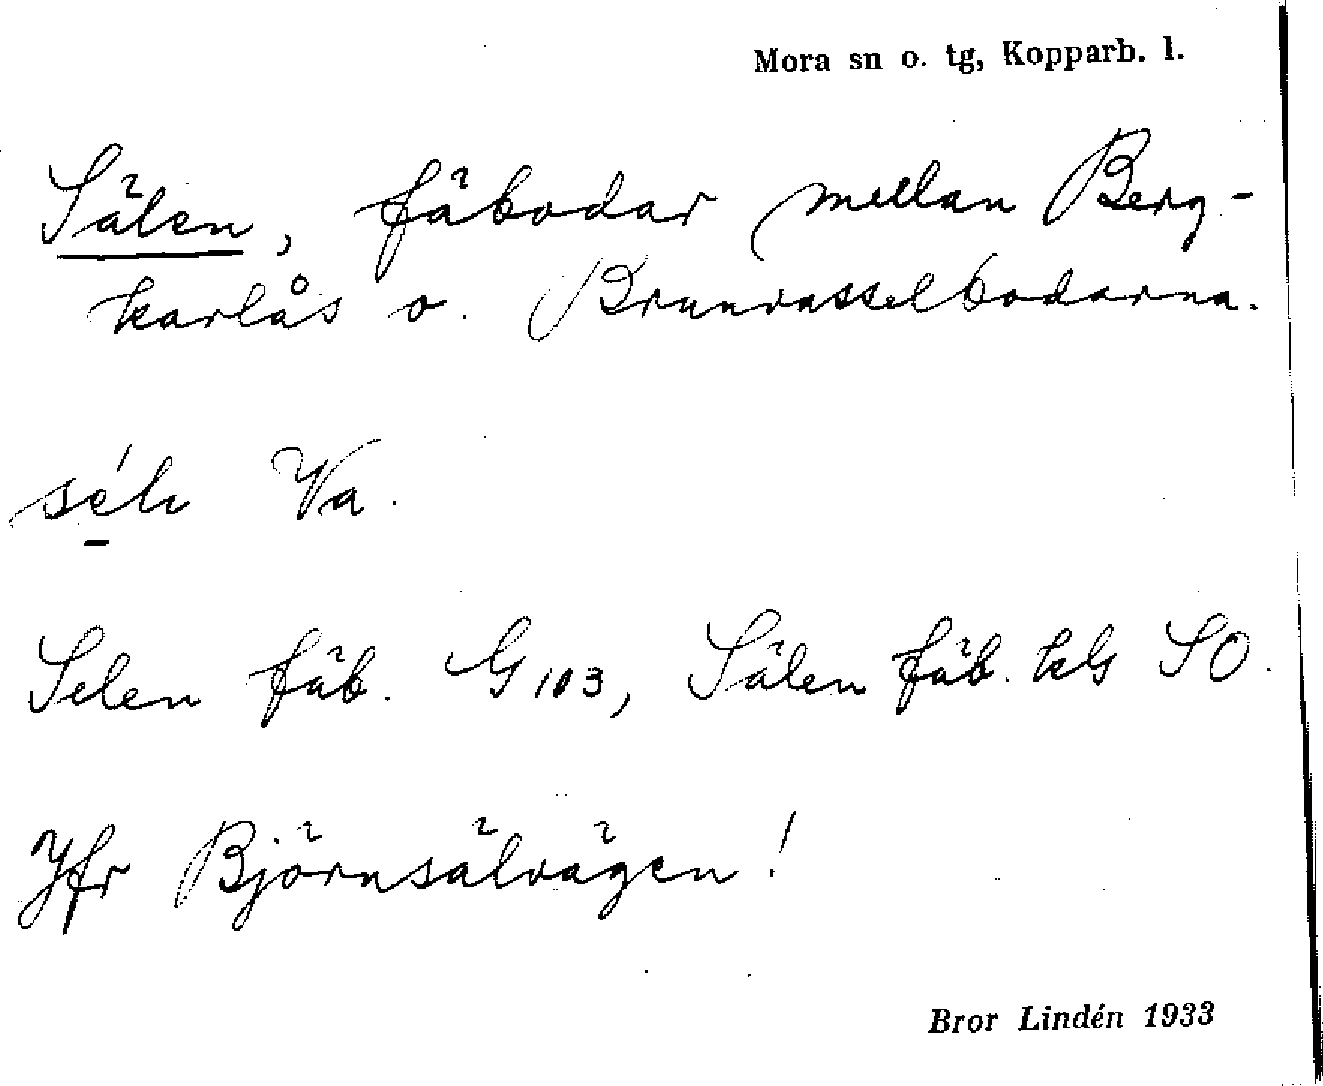 Mora sn o. tg, Kopparb. l.
Sälen, fäbodar mellan Berg-
karlås o. Brunvasselbodarna.
sélv Va.
Selen fäb. G 103, Sälen fäb. kG SO.
Jfr Björnsälvägen!
Bror Lindén 1933